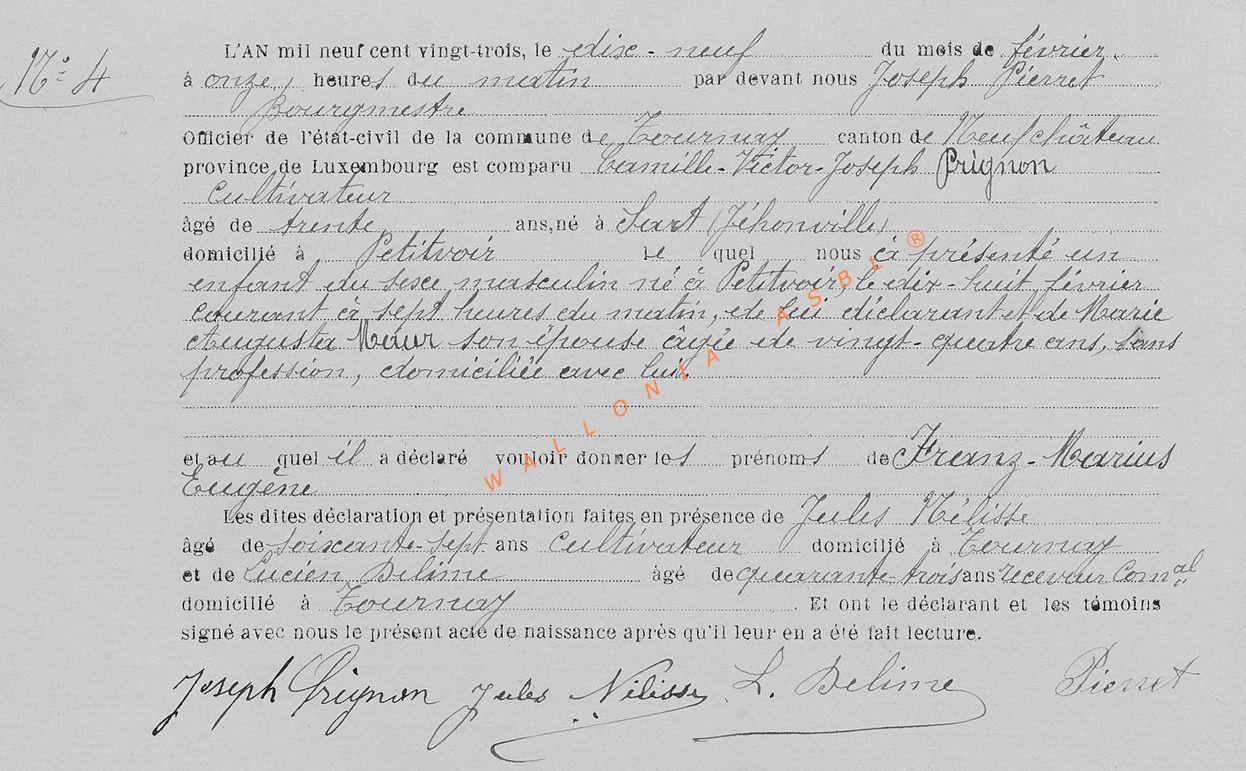 N° 4
L'AN mil neuf cent vingt-trois, le dix-neuf du mois de février
à onze heures du matin par devant nous Joseph Pierret
Bourgmestre
Officier de l'état-civil de la commune de Tournay canton de Neufchâteau
province de Luxembourg est comparu Camille-Victor-Joseph Prignon
Cultivateur
âgé de trente ans, né à Sart (Jéhonville)
domicilié à Petitvoir le quel nous a présenté un
enfant du sexe masculin né à Petitvoir, le dix-huit février
courant à sept heures du matin, de lui déclarant et de Marie
Augusta Maur son épouse âgée de vingt-quatre ans, sans
profession, domiciliée avec lui.
et au quel il a déclaré vouloir donner les prénoms de Franz-Marius
Eugène
Les dites déclaration et présentation faites en présence de Jules Nélisse
âgé de soixante-sept ans Cultivateur domicilié à Tournay
et de Lucien Delime âgé de quarante-trois ans receveur Comal
domicilié à Tournay. Et ont le déclarant et les témoins
signé avec nous le présent acte de naissance après qu'il leur en a été fait lecture.
Joseph Prignon Jules Nélisse L. Delime Pierret
WALLONIA ASBL ®